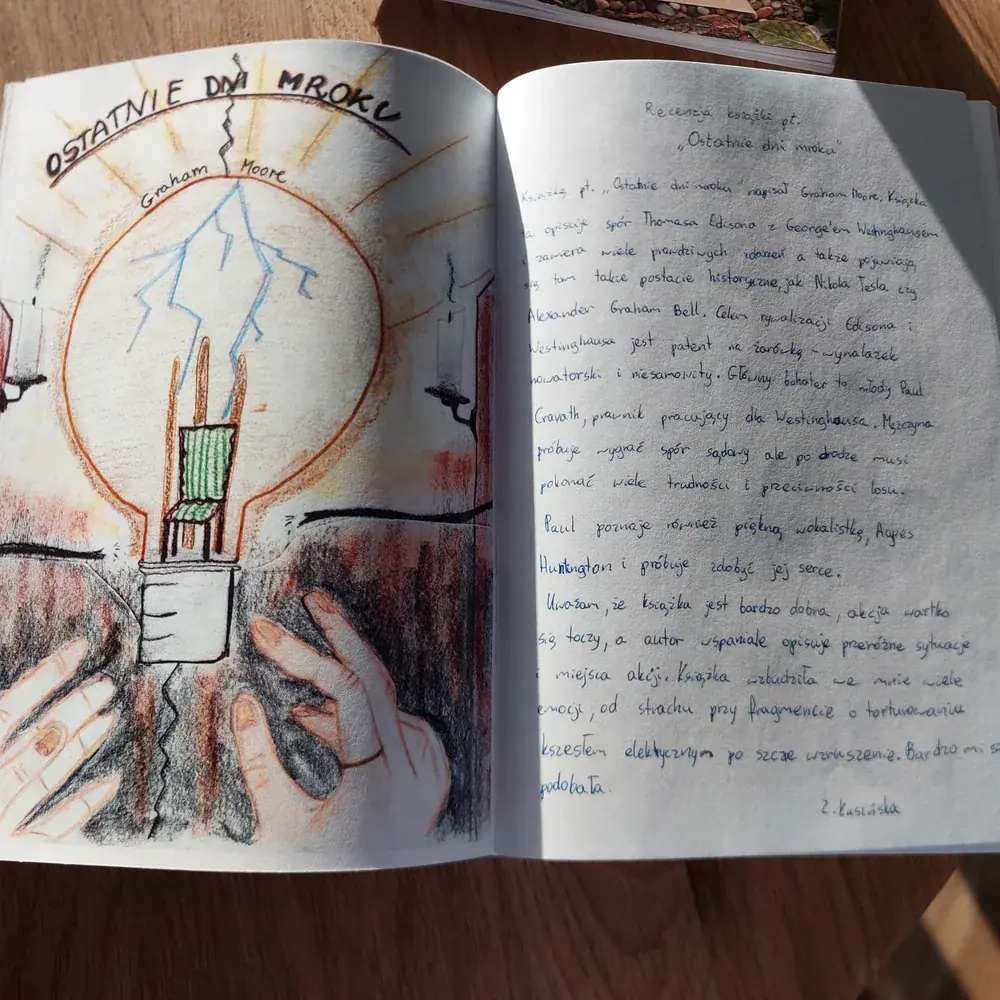 OSTATNIE DNI MROKU
Graham Moore
Recenzja książki pt.
„Ostatnie dni mroku"
Książkę pt. „Ostatnie dni mroku" napisał Graham Moore. Książka
ta opisuje spór Thomasa Edisona z George'em Westinghausem
i zawiera wiele prawdziwych zdarzeń a także pojawiają
się tam takie postacie historyczne, jak Nikola Tesla czy
Alexander Graham Bell. Celem rywalizacji Edisona i
Westinghausa jest patent na żarówkę - wynalazek
nowatorski i niesamowity. Główny bohater to młody Paul
Cravath, prawnik pracujący dla Westinghausa. Mężczyzna
próbuje wygrać spór sądowy ale po drodze musi
pokonać wiele trudności i przeciwności losu.
Paul poznaje również piękną wokalistkę, Agnes
Huntington i próbuje zdobyć jej serce.
Uważam, że książka jest bardzo dobra, akcja wartko
się toczy, a autor wspaniale opisuje przeróżne sytuacje
i miejsca akcji. Książka wzbudziła we mnie wiele
emocji, od strachu przy fragmencie o torturowaniu
kszesłem elektycznym po szcze wzruszenie. Bardzo mi s
podobała.
Z. Kusińska